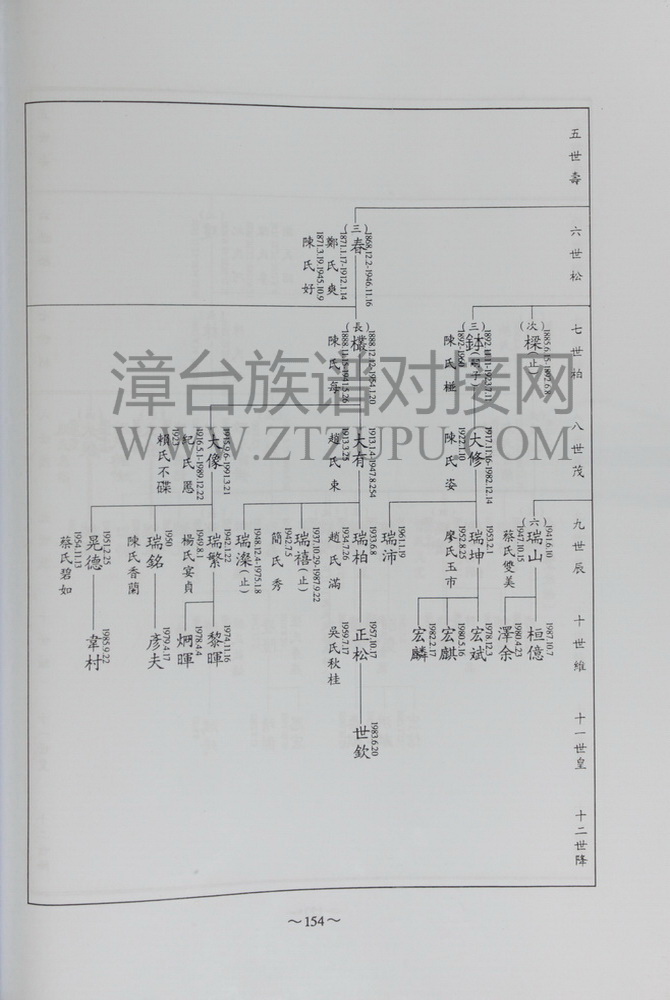 五世壽
六世松
七世柏
八世茂
九世辰
十世維
十一世皇
十二世隆
(三)春
1868.12.2-1946.11.16
鄭氏爽
1871.1.17-1912.1.14
陳氏好
1871.3.19-1945.10.9
(次)樑(止)
(三)
陳氏椪
(長)
1888.12.12-1954.1.20
陳氏每
大修
1917.11.16-1982.12.14
陳氏姿
1922.11.10
大有
1913.1.4-1947.8.254
趙氏束
1913.3.25
大像
1915.9.6-1991.3.21
紀氏恩
1916.5.1-1989.12.22
賴氏不碟
(六)瑞山
1941.6.10
蔡氏雙美
1947.10.15
瑞坤
1953.2.1
廖氏玉市
1952.8.25
瑞沛
1961.1.19
瑞柏
1933.6.8
趙氏滿
1934.7.26
瑞禧(止)
1937.10.29-1987.9.22
簡氏秀
1942.7.5
瑞濼(止)
1948.12.4-1975.1.8
瑞繁
1942.1.22
楊氏宴貞
1949.8.1
瑞銘
1950
陳氏香蘭
晃德
1951.2.25
蔡氏碧如
1954.11.13
桓億
1987.10.7
澤余
1980.4.23
宏斌
1978.12.3
宏麒
1980.5.16
宏麟
1982.2.17
正松
1957.10.17
吳氏秋桂
1959.7.17
黎暉
1974.11.16
炯暉
1978.4.4
彥夫
1979.4.17
韋村
1985.9.22
世欽
1983.6.20
漳台族谱对接网
WWW.ZTZUPU.COM
～154～